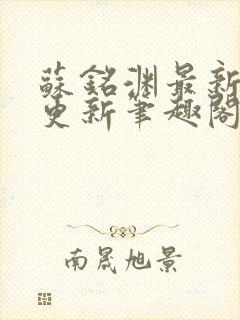 蘇銘淵最新
更新筆趣閣
南晟旭景